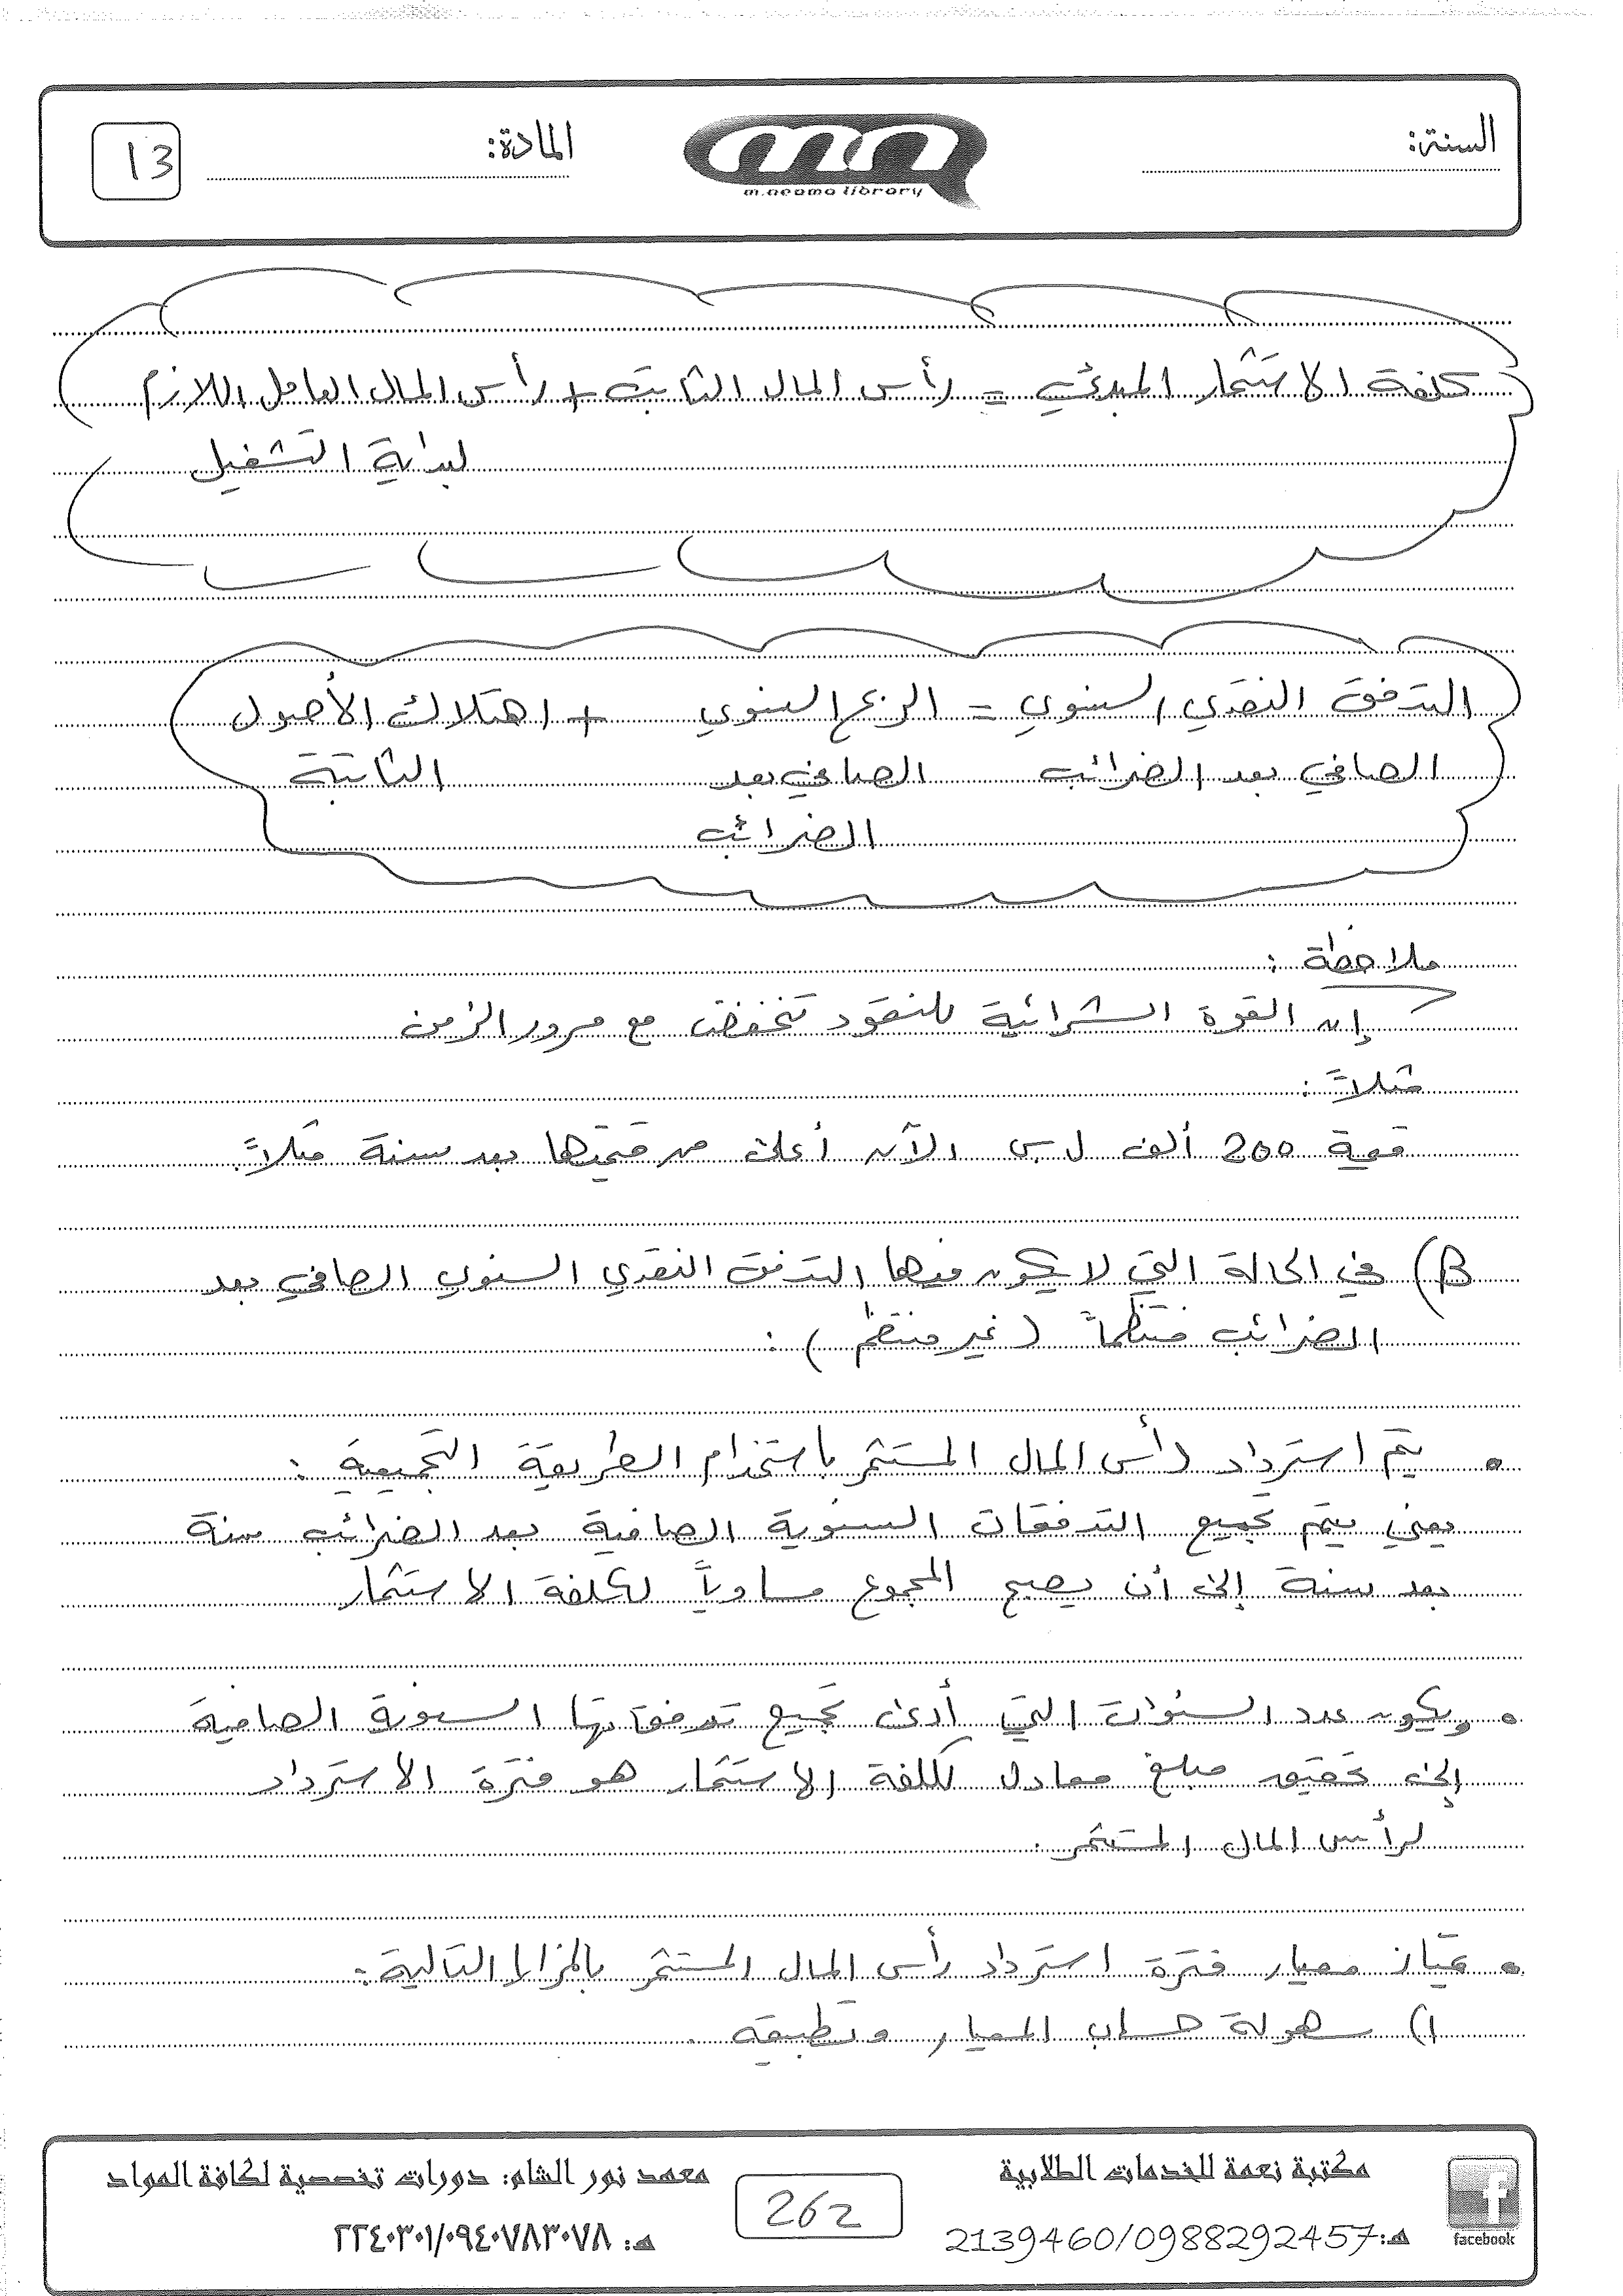 السنة:
m.neama library
المادة:
13
كلفة الاستثمار المبدئي = رأس المال الثابت + رأس المال العامل اللازم
لبداية التشغيل
التدفق النقدي السنوي = الربح السنوي + اهتلاك الأصول
الصافي بعد الضرائب الصافي بعد الثابتة
الضرائب
ملاحظة :
إن القوة الشرائية للنقود تنخفض مع مرور الزمن
مثلاً :
قيمة 200 ألف ل.س الآن أعلى من قيمتها بعد سنة مثلاً.
B) في الحالة التي لا يكون فيها التدفق النقدي السنوي الصافي بعد
الضرائب منتظماً (غير منتظم) :
• يتم استرداد رأس المال المستثمر باستخدام الطريقة التجميعية :
يعني يتم تجميع التدفقات السنوية الصافية بعد الضرائب سنة
بعد سنة إلى أن يصبح المجموع مساوياً لكلفة الاستثمار
• ويكون عدد السنوات التي أدى تجميع تدفقاتها السنوية الصافية
إلى تحقيق مبلغ معادل لكلفة الاستثمار هو فترة الاسترداد
لرأس المال المستثمر .
• يمتاز معيار فترة استرداد رأس المال المستثمر بالمزايا التالية :
1) سهولة حساب المعيار وتطبيقه .
مكتبة نعمة للخدمات الطلابية
هـ: 2139460/0988292457
facebook
262
معهد نور الشام: دورات تخصصية لكافة المواد
هـ: ٢٢٤٠٣٠١/٠٩٤٠٧٨٣٠٧٨